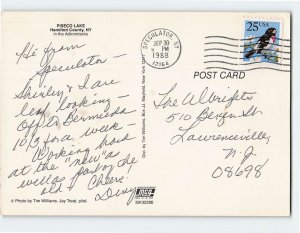 PISECO LAKE
Hamilton County, NY
in the Adirondacks
Hi from
Speculator –
Shirley & I are
leaf looking –
Off to Bermuda
10/3 for a week –
Working hard
at the "new" as
well as part of the
old! Cheers!
© Photo by Tim Williams. Jay Treat, pilot.
Dist. by Tim Williams, Box JJ, Mayfield, New York
SPECULATOR NY
SEP 30
PM
1988
12164
25 USA
POST CARD
The Albrights
510 Bergen St
Lawrenceville,
N.J.
08698